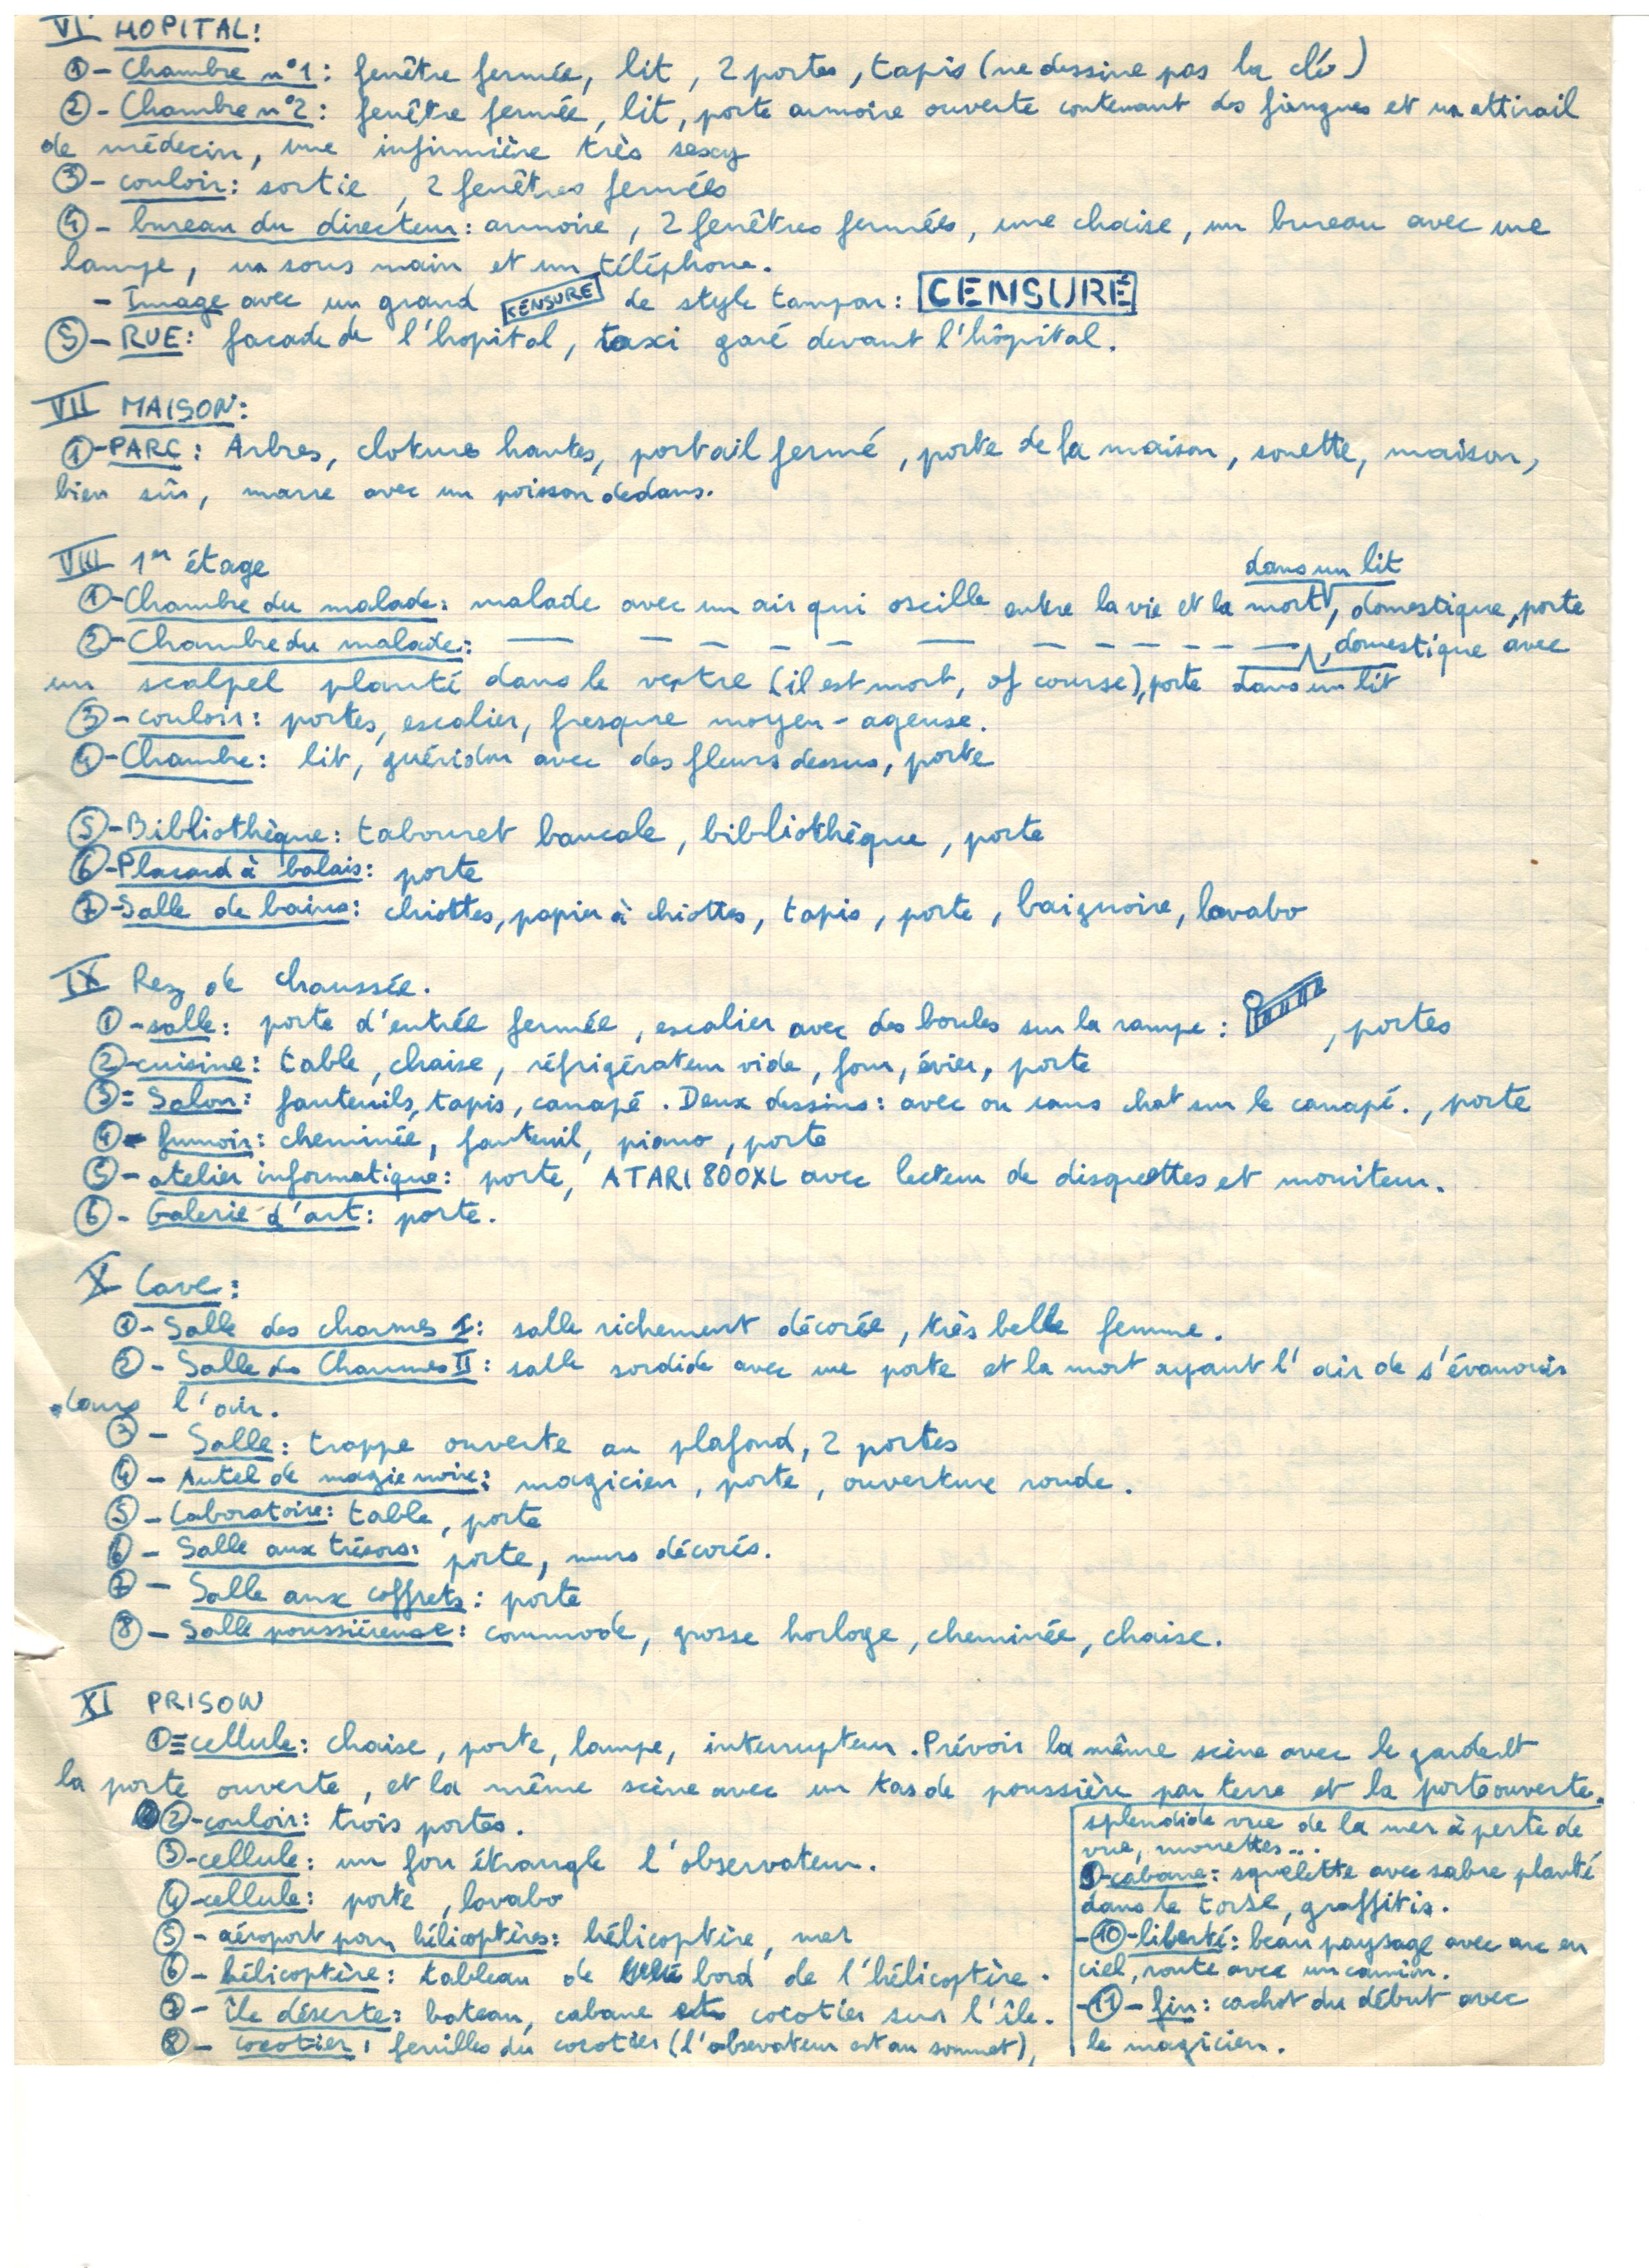 VI HOPITAL:
①- Chambre n°1: fenêtre fermée, lit, 2 portes, tapis (ne dessine pas la clé)
②- Chambre n°2: fenêtre fermée, lit, porte armoire ouverte contenant des fringues et un attirail
de médecin, une infirmière très sexy
③- couloir: sortie, 2 fenêtres fermées
④- bureau du directeur: armoire, 2 fenêtres fermées, une chaise, un bureau avec une
lampe, un sous main et un téléphone.
- Image avec un grand CENSURÉ de style tampon: CENSURÉ
⑤- RUE: facade de l'hopital, taxi garé devant l'hôpital.
VII MAISON:
①-PARC: Arbres, cloture hautes, portail fermé, porte de la maison, sonette, maison,
bien sûr, marre avec un poisson dedans.
VIII 1er étage
dans un lit
①-Chambre du malade: malade avec un air qui oscille entre la vie et la mort, domestique, porte
②-Chambre du malade: — — — — — — — — — — — —, domestique avec
un scalpel planté dans le ventre (il est mort, of course), porte dans un lit
③-couloir: portes, escalier, fresque moyen-ageuse.
④-Chambre: lit, guéridon avec des fleurs dessus, porte
⑤-Bibliothèque: tabouret bancale, bibliothèque, porte
⑥-Placard à balais: porte
⑦-Salle de bains: chiottes, papier à chiottes, tapis, porte, baignoire, lavabo
IX Rez de chaussée.
①-salle: porte d'entrée fermée, escalier avec des boules sur la rampe: , portes
②-cuisine: table, chaise, réfrigérateur vide, four, évier, porte
③= Salon: fauteuils, tapis, canapé. Deux dessins: avec ou sans chat sur le canapé., porte
④- fumoir: cheminée, fauteuil, piano, porte
⑤-atelier informatique: porte, ATARI 800XL avec lecteur de disquettes et moniteur.
⑥- Galerie d'art: porte.
X Cave:
①- Salle des charmes I: salle richement décorée, très belle femme.
②- Salle des Charmes II: salle sordide avec une porte et la mort ayant l'air de s'évanouir
dans l'air.
③- Salle: trappe ouverte au plafond, 2 portes
④- Autel de magie noire: magicien, porte, ouverture ronde.
⑤- Laboratoire: table, porte
⑥- Salle aux trésors: porte, murs décorés.
⑦- Salle aux coffrets: porte
⑧- Salle poussiéreuse: commode, grosse horloge, cheminée, chaise.
XI PRISON
①=cellule: chaise, porte, lampe, interrupteur. Prévoir la même scène avec le garde et
la porte ouverte, et la même scène avec un tas de poussière par terre et la porte ouverte.
②-couloir: trois portes.
③-cellule: un fou étrangle l'observateur.
④-cellule: porte, lavabo
⑤- aéroport pour hélicoptères: hélicoptère, mer
⑥- hélicoptère: tableau de bord de l'hélicoptère.
⑦- île déserte: bateau, cabane et cocotier sur l'île.
⑧- cocotier: feuilles du cocotier (l'observateur est au sommet),
splendide vue de la mer à perte de
vue, mouettes...
⑨-cabane: squelette avec sabre planté
dans le torse, graffitis.
-⑩-liberté: beau paysage avec arc en
ciel, route avec un camion.
-⑪- fin: cachot du début avec
le magicien.